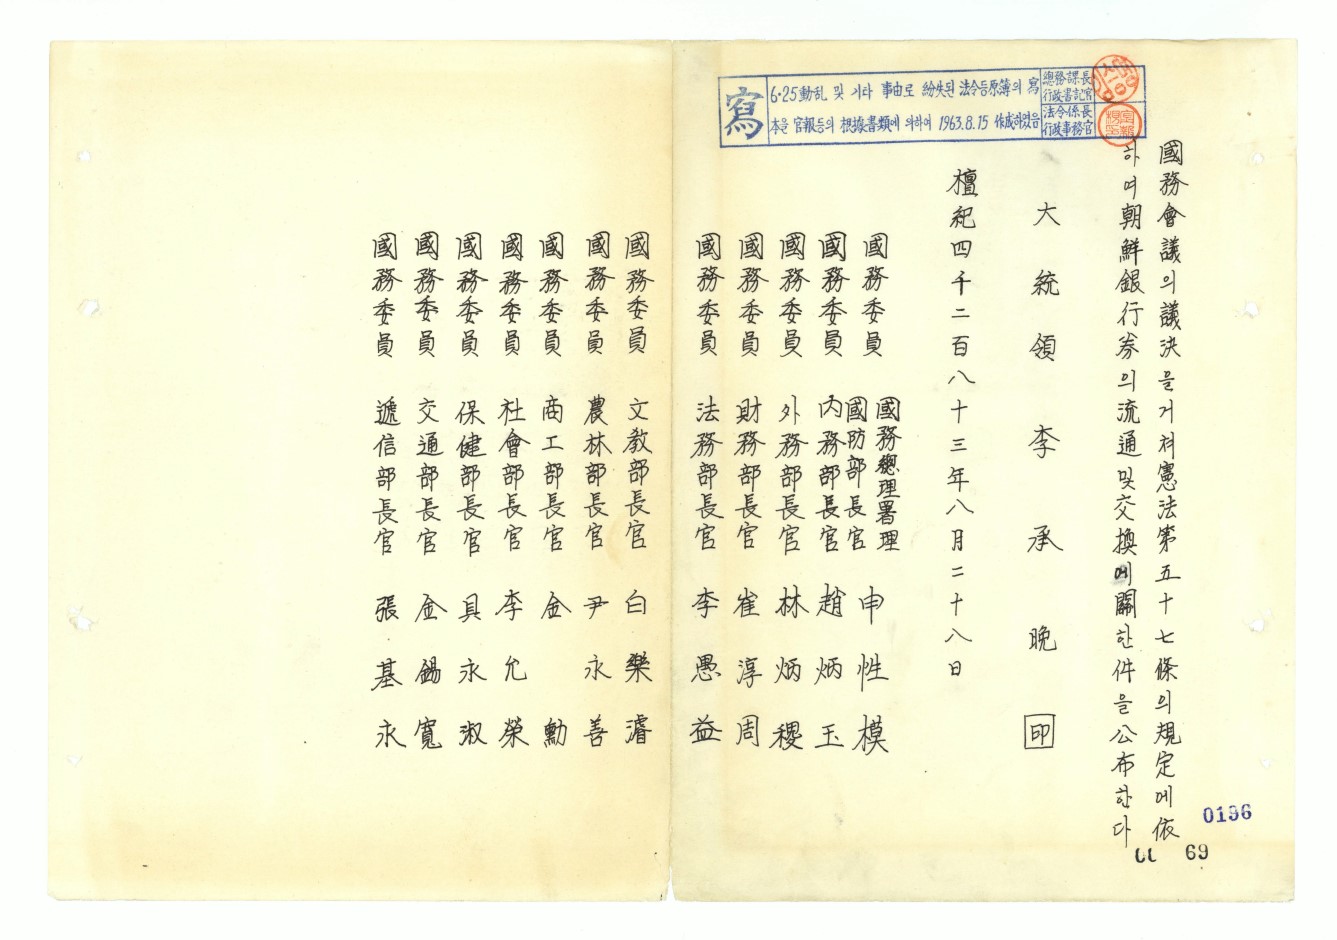 寫
6·25動乱 및 기타 事由로 紛失된 法令등原簿의 寫
本을 官報등의 根據書類에 의하여 1963.8.15 作成하였음
總務課長
行政書記官
法令係長
行政事務官
國務會議의議決을거쳐憲法第五十七條의規定에依
하여朝鮮銀行券의流通및交換에關한件을公布한다
大統領 李承晩 印
檀紀四千二百八十三年八月二十八日
國務委員 國務總理署理
國防部長官 申性模
國務委員 內務部長官 趙炳玉
國務委員 外務部長官 林炳稷
國務委員 財務部長官 崔淳周
國務委員 法務部長官 李愚益
國務委員 文敎部長官 白樂濬
國務委員 農林部長官 尹永善
國務委員 商工部長官 金勳
國務委員 社會部長官 李允榮
國務委員 保健部長官 具永淑
國務委員 交通部長官 金錫寬
國務委員 遞信部長官 張基永
0196
69